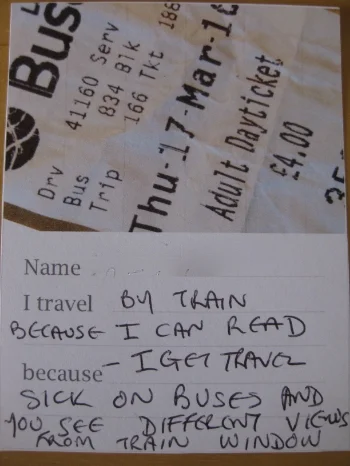 Bus
Drv 41160 Serv 186
Bus 834 Blk
Trip 166 Tkt
Thu-17-Mar-16
Adult Dayticket
£4.00
Name
I travel BY TRAIN
BECAUSE I CAN READ
because - I GET TRAVEL
SICK ON BUSES AND
YOU SEE DIFFERENT VIEWS
FROM TRAIN WINDOW